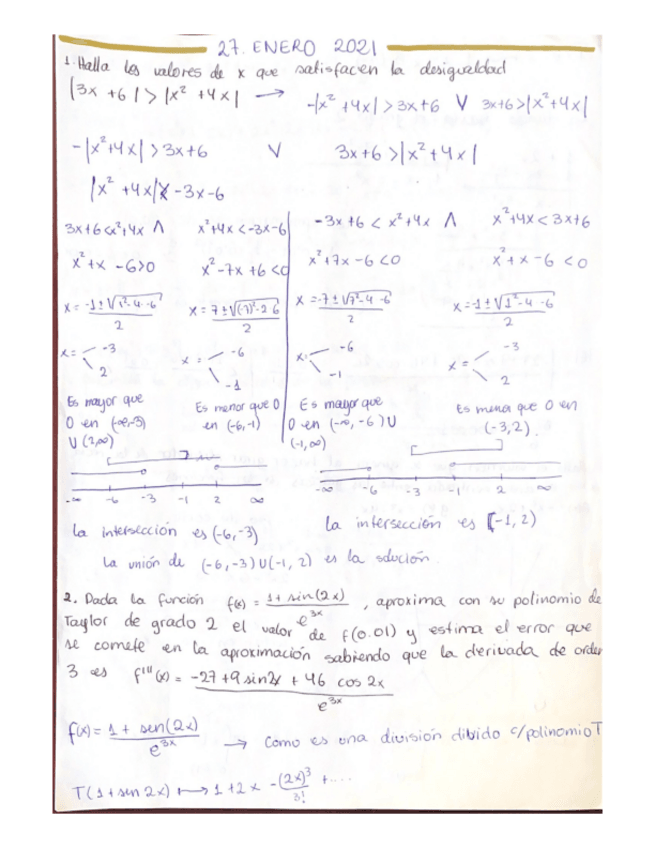 27. ENERO 2021
1. Halla los valores de x que satisfacen la desigualdad
|3x + 6| > |x² + 4x| → -|x² + 4x| > 3x+6 V 3x+6 > |x²+4x|
-|x²+4x| > 3x+6 V 3x+6 > |x²+4x|
|x² + 4x| < -3x-6
3x+6 < x²+4x Λ x²+4x < -3x-6 -3x+6 < x²+4x Λ x²+4x < 3x+6
x²+x-6>0 x²-7x+6<0 x²+7x-6<0 x²+x-6<0
x = -1±√1²-4·-6 / 2 x = 7±√(-7)²-2 6 / 2 x = -7±√7²-4 -6 / 2 x = -1±√1²-4 -6 / 2
x = -3 x = -6 x = -6 x = -3
2 -1 -1 2
Es mayor que Es menor que 0 Es mayor que Es menor que 0 en
0 en (-∞,-3) en (-6,-1) 0 en (-∞,-6) U (-3,2).
U (2,∞) (-1,∞)
-∞ -6 -3 -1 2 ∞ -∞ -6 -3 -1 2 ∞
La intersección es (-6,-3) La intersección es [-1,2)
La unión de (-6,-3) U (-1, 2) es la solución.
2. Dada la función f(x) = 1 + sin(2x) / e³ˣ , aproxima con su polinomio de
Taylor de grado 2 el valor de f(0.01) y estima el error que
se comete en la aproximación sabiendo que la derivada de orden
3 es f'''(x) = -27+9 sin2x + 46 cos 2x / e³ˣ
f(x) = 1 + sen(2x) / e³ˣ → Como es una división dibido c/polinomio T
T(1+sen 2x) ↦ 1+2x - (2x)³/3! + ....